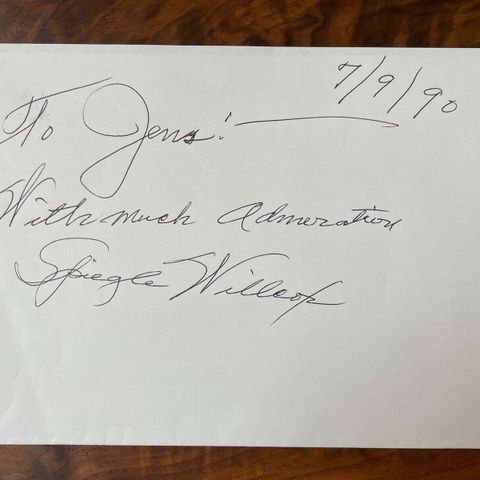 7/9/90
To Jens!
With much Admeration
Spiegle Willcox